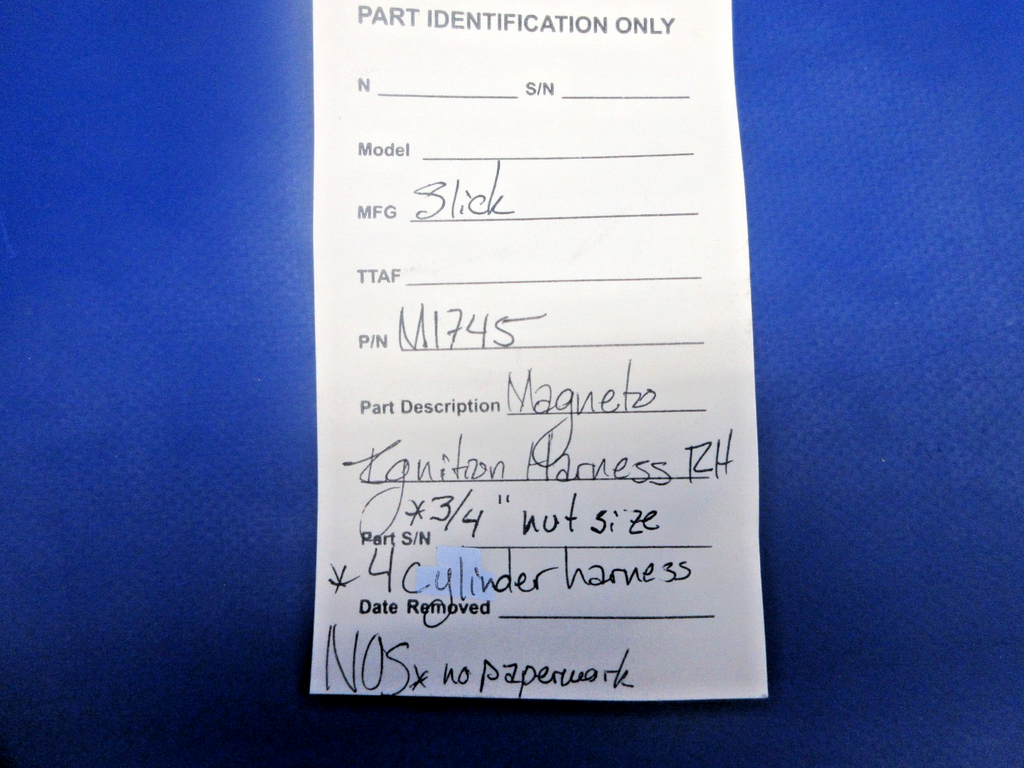 PART IDENTIFICATION ONLY
N S/N
Model
MFG Slick
TTAF
P/N M1745
Part Description Magneto
Ignition Harness RH
*3/4" nut size
Part S/N
* 4 cylinder harness
Date Removed
NOS * no paperwork